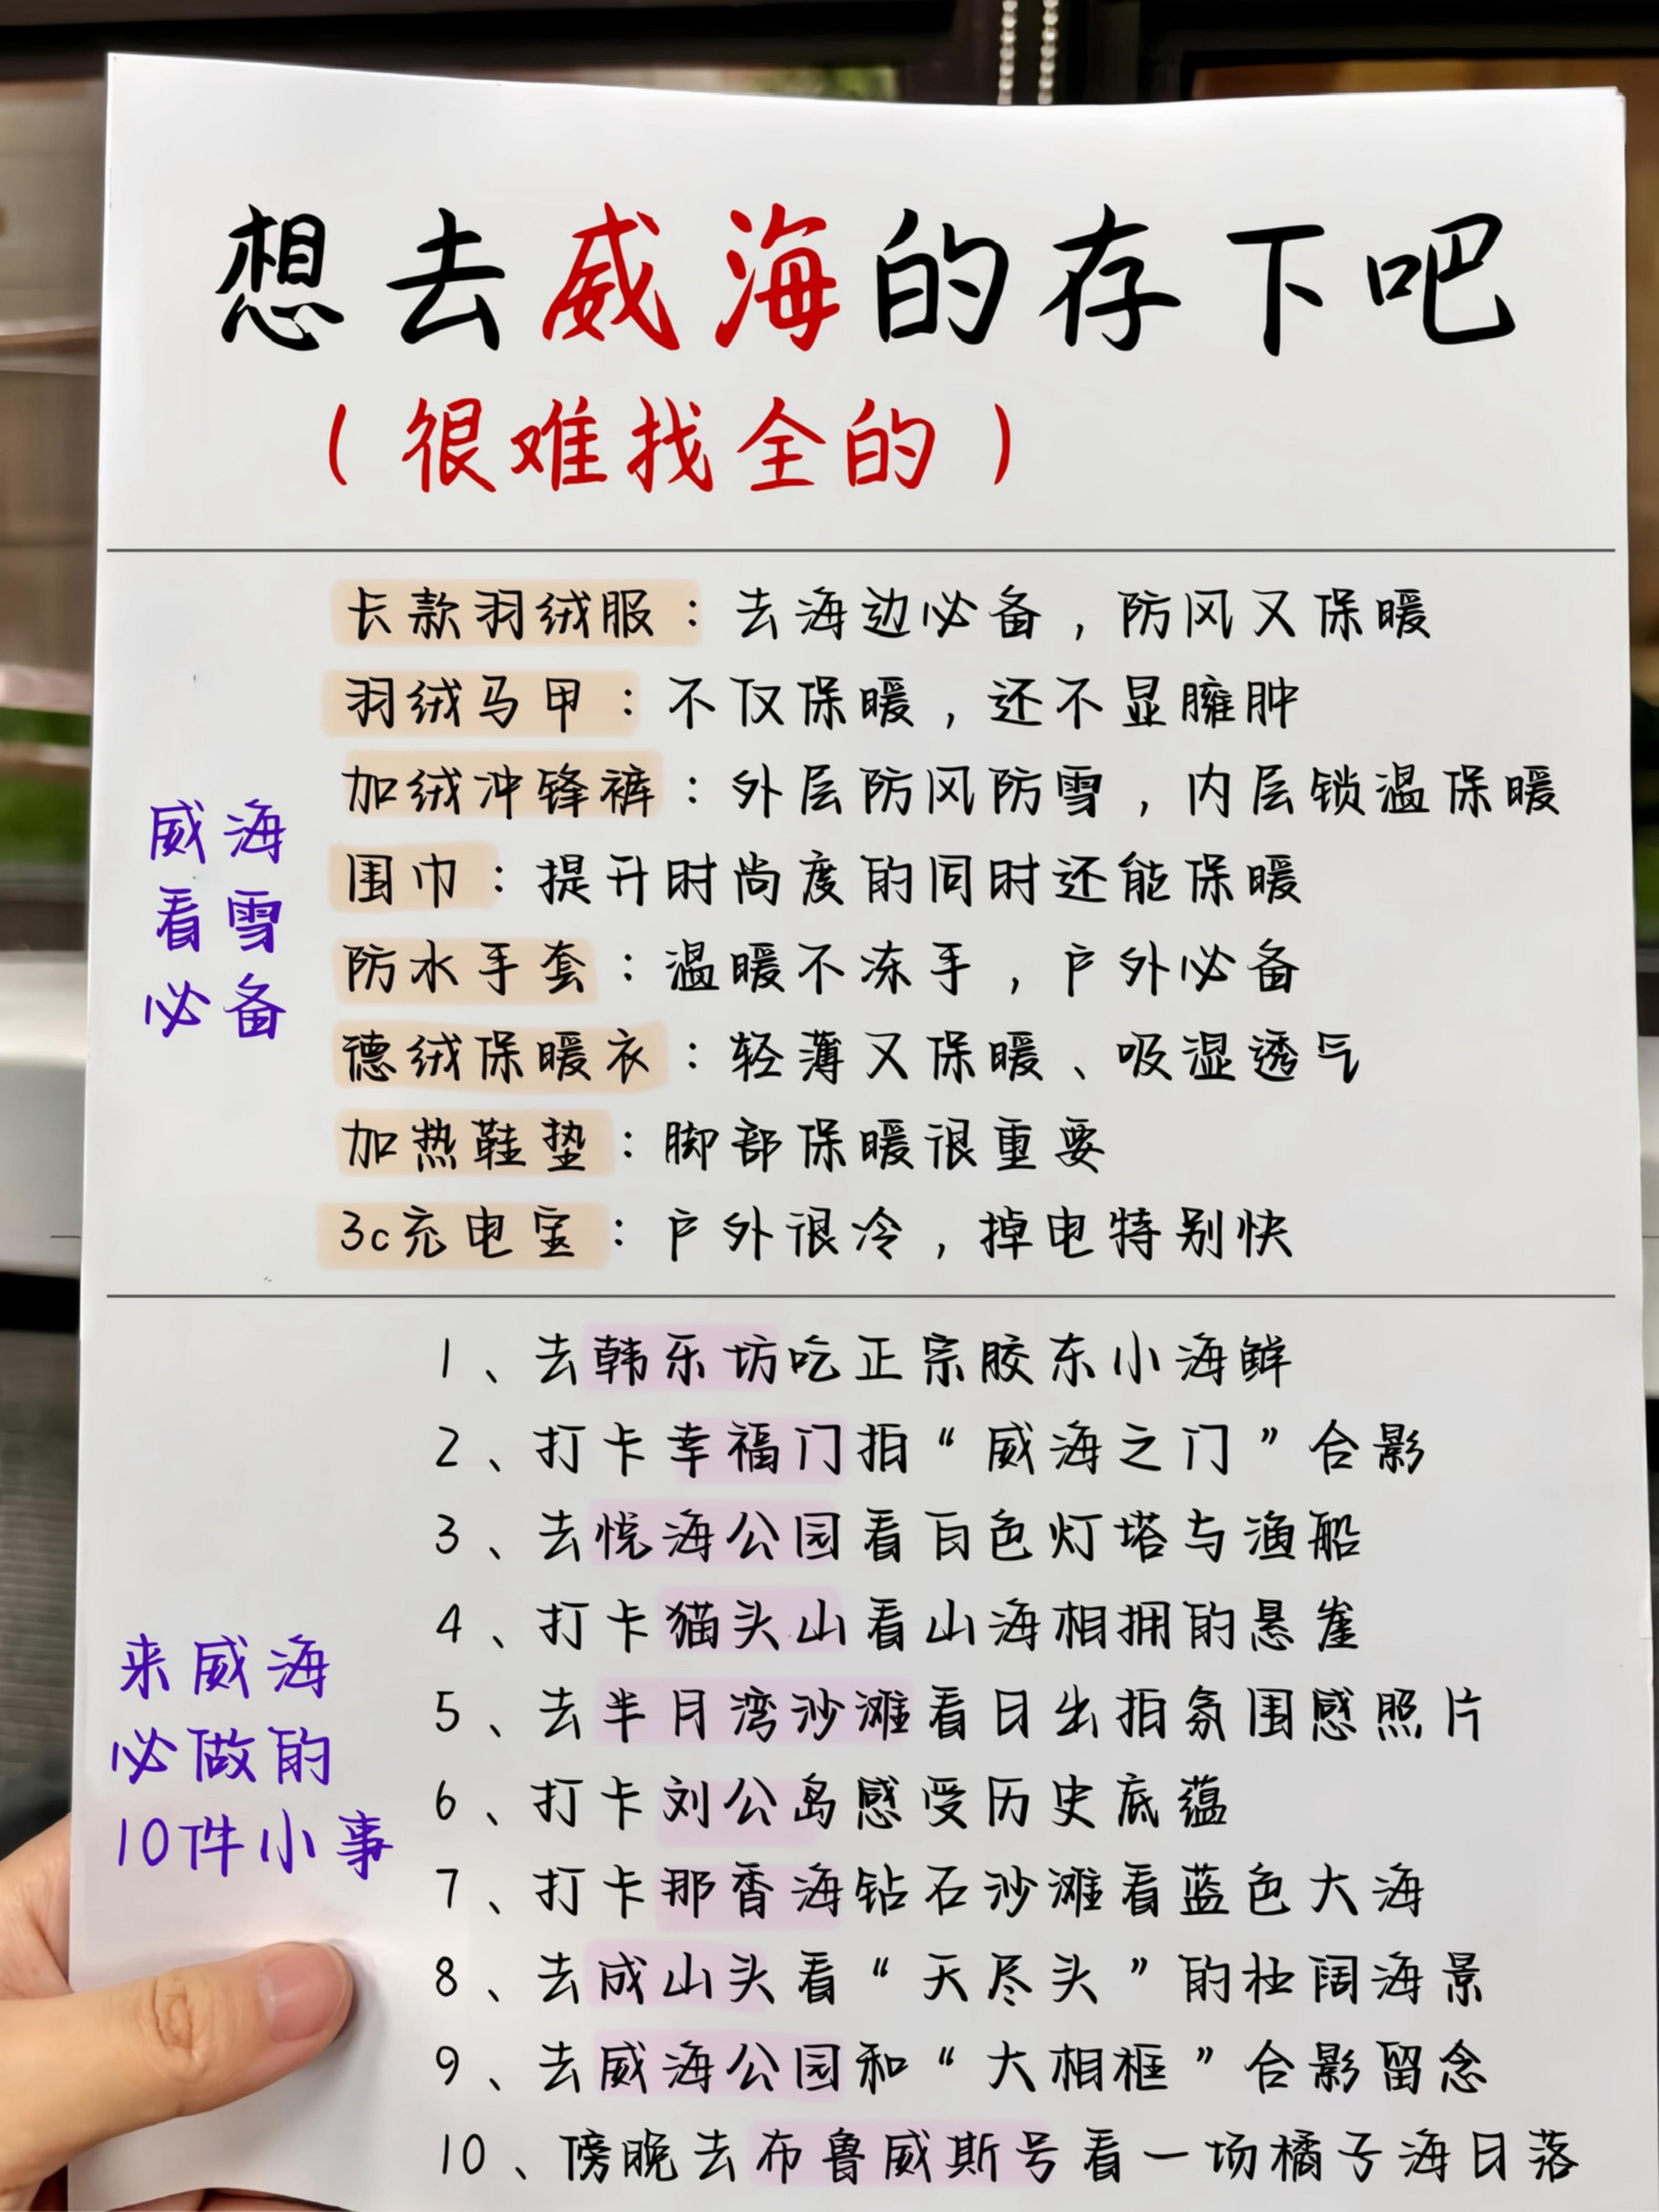 想去威海的存下吧
（很难找全的）
威海
看雪
必备
长款羽绒服：去海边必备，防风又保暖
羽绒马甲：不仅保暖，还不显臃肿
加绒冲锋裤：外层防风防雪，内层锁温保暖
围巾：提升时尚度的同时还能保暖
防水手套：温暖不冻手，户外必备
德绒保暖衣：轻薄又保暖、吸湿透气
加热鞋垫：脚部保暖很重要
3c充电宝：户外很冷，掉电特别快
来威海
必做的
10件小事
1、去韩乐坊吃正宗胶东小海鲜
2、打卡幸福门拍“威海之门”合影
3、去悦海公园看白色灯塔与渔船
4、打卡猫头山看山海相拥的悬崖
5、去半月湾沙滩看日出拍氛围感照片
6、打卡刘公岛感受历史底蕴
7、打卡那香海钻石沙滩看蓝色大海
8、去成山头看“天尽头”的壮阔海景
9、去威海公园和“大相框”合影留念
10、傍晚去布鲁威斯号看一场橘子海日落